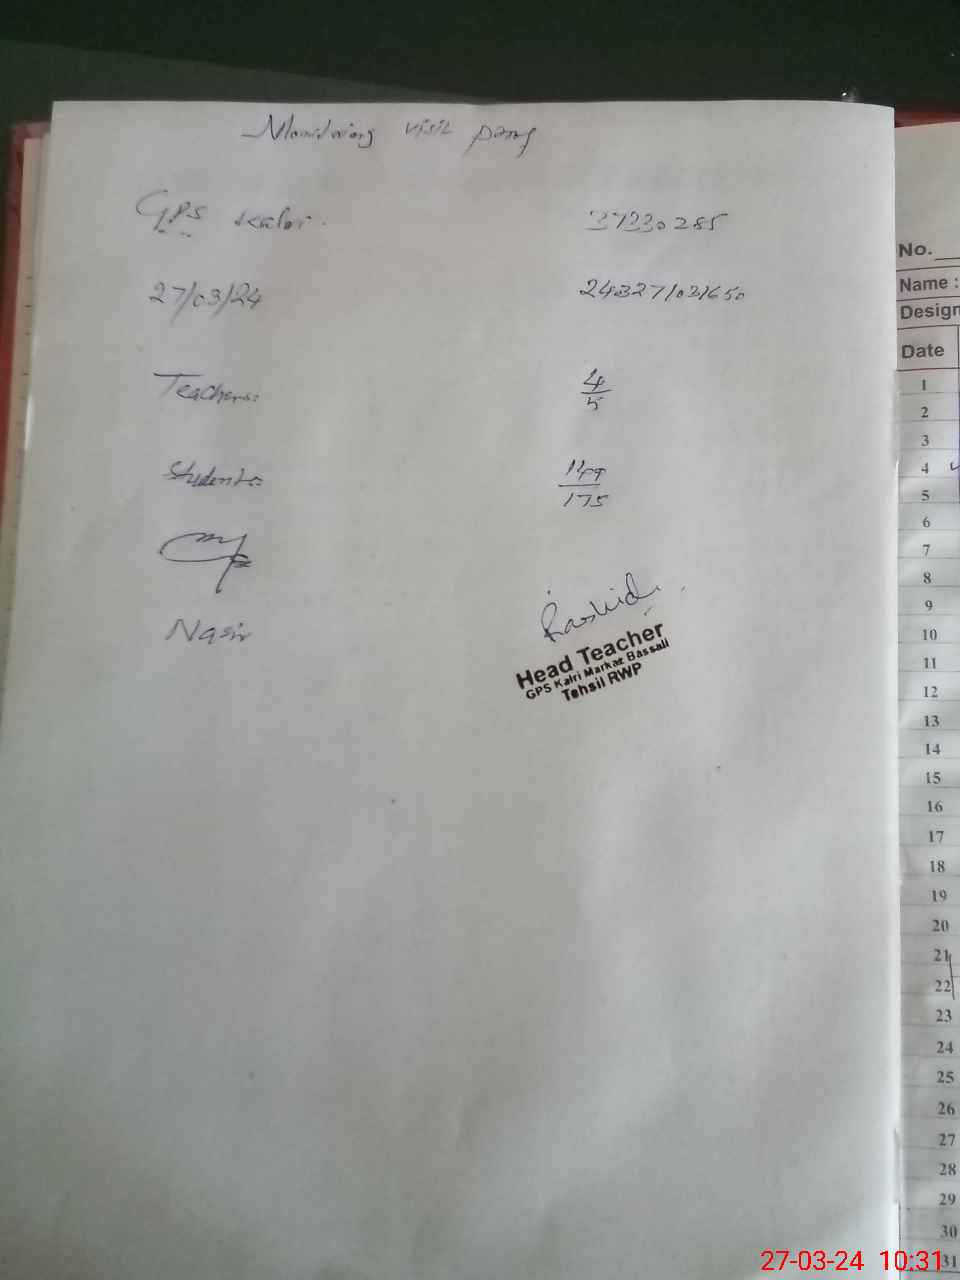 Monitoring visit perf
GPS Kalri. 37330285
27/03/24 243271031650
Teachers: 4/5
Students: 149/175
Nasir
Rashid
Head Teacher
GPS Kalri Markaz Bassali
Tehsil RWP
No.
Name :
Design
Date
1
2
3
4
5
6
7
8
9
10
11
12
13
14
15
16
17
18
19
20
21
22
23
24
25
26
27
28
29
30
31
27-03-24 10:31